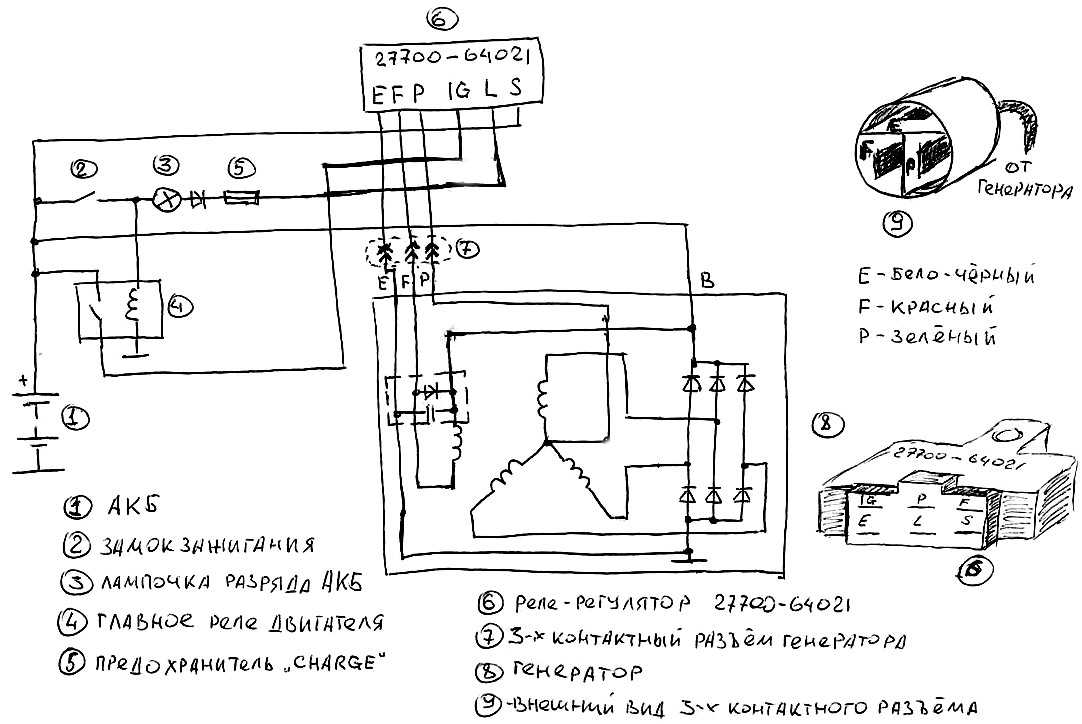 6
27700-64021
E F P IG L S
2
3
5
7
E F P
B
4
+
1
E
F
P
от
генератора
9
E - Бело-чёрный
F - красный
P - зелёный
8
27700-64021
IG P F
E L S
6
1 АКБ
2 замок зажигания
3 лампочка разряда АКБ
4 главное реле двигателя
5 предохранитель „CHARGE"
6 реле-регулятор 27700-64021
7 3-х контактный разъём генератора
8 генератор
9 -внешний вид 3-х контактного разъёма